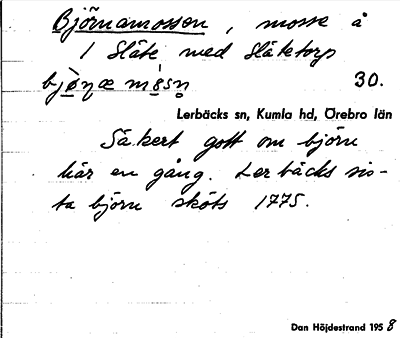 Björnamossen, mosse å
1 Släte, med Slätetorp
30.
Lerbäcks sn, Kumla hd, Örebro län
Säkert gott om björn
här en gång. Lerbäcks sis-
ta björn sköts 1775.
Dan Höjdestrand 1958